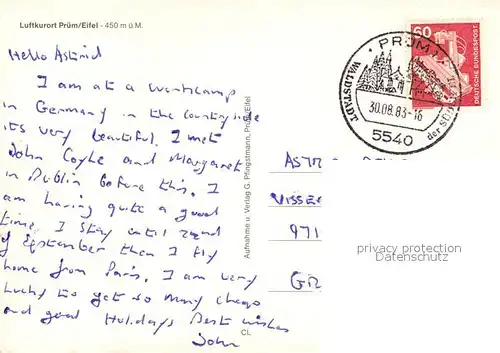 Luftkurort Prüm/Eifel - 450 m ü.M.
Hello Astrid
I am at a workcamp
in Germany in the countryside
its very beautiful. I met
John Coyle and Margaret
in Dublin before this. I
am having quite a good
time. I stay until 22nd
of September then I fly
home from Paris. I am very
lucky to get so many cheap
and good Holidays Best wishes
John
Aufnahme u. Verlag G. Pfingstmann, Prüm/Eifel
CL
60
DEUTSCHE BUNDESPOST
PRÜM
WALDSTADT
30.08.83-16
5540
der
VISSE
971
GR
privacy protection
Datenschutz